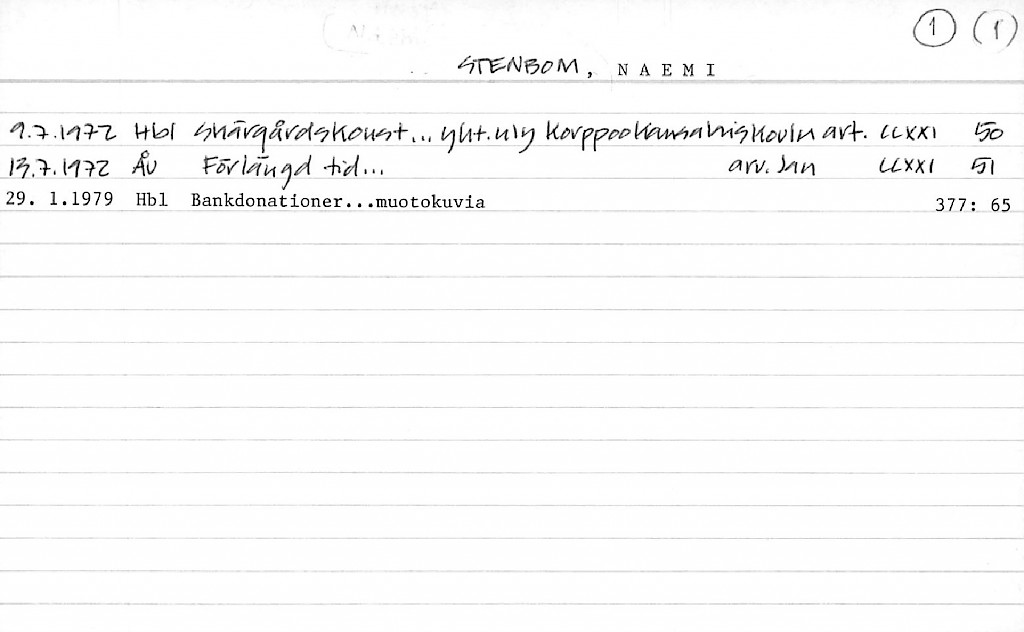 1 (1)
STENBOM, NAEMI
9.7.1972 Hbl Skärgårdskonst... yht.näy Korppoo Kansakoulu art. CCXXI 50
13.7.1972 ÅU Förlängd tid... arv. Jan CCXXI 51
29. 1.1979 Hbl Bankdonationer...muotokuvia 377: 65